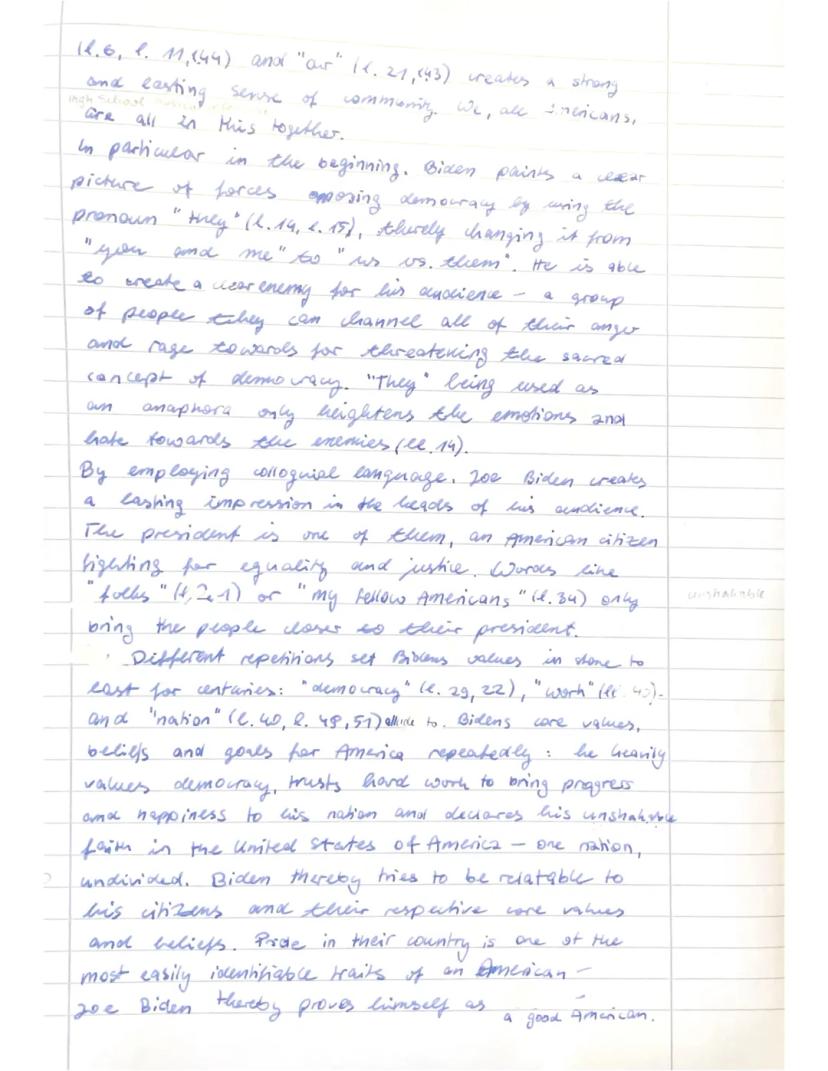 (l.6, l. 11, l.44) and "our" (l. 21, l.43) creates a strong
and lasting sense of community. We, all Americans,
High School
are all in this together.
In particular in the beginning, Biden paints a clear
picture of forces opposing democracy by using the
pronoun "they" (l.14, l.15), thereby changing it from
"you and me" to "us vs. them". He is able
to create a clear enemy for his audience – a group
of people they can channel all of their anger
and rage towards for threatening the sacred
concept of democracy. "They" being used as
an anaphora only heightens the emotions and
hate towards the enemies (ll. 14).
By employing colloquial language, Joe Biden creates
a lasting impression in the heads of his audience.
The president is one of them, an American citizen
fighting for equality and justice. Words like
"folks" (l. 1) or "my fellow Americans" (l. 34) only
unshakable
bring the people closer to their president.
Different repetitions set Bidens values in stone to
last for centuries: "democracy" (l. 29, 22), "work" (ll. 40)
and "nation" (l. 40, l. 48, 51) allude to Bidens core values,
beliefs and goals for America repeatedly: he heavily
values democracy, trusts hard work to bring progress
and happiness to his nation and declares his unshakable
faith in the United States of America – one nation,
undivided. Biden thereby tries to be relatable to
his citizens and their respective core values
and beliefs. Pride in their country is one of the
most easily identifiable traits of an American –
Joe Biden thereby proves himself as a good American.